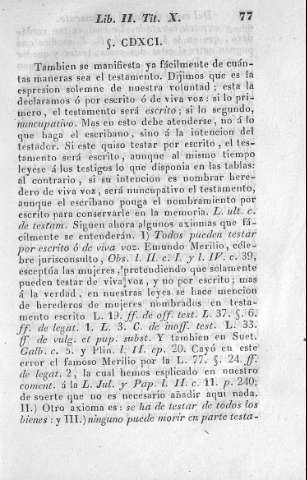 Lib. II. Tit. X. 77
§. CDXCI.
Tambien se manifiesta ya fácilmente de cuán-
tas maneras sea el testamento. Dijimos que es la
espresion solemne de nuestra voluntad; esta la
declaramos ó por escrito ó de viva voz: si lo pri-
mero, el testamento será escrito; si lo segundo,
nuncupativo. Mas en esto debe atenderse, no á lo
que haga el escribano, sino á la intencion del
testador. Si este quiso testar por escrito, el tes-
tamento será escrito, aunque al mismo tiempo
leyese á los testigos lo que disponia en las tablas:
al contrario, si su intencion es nombrar here-
dero de viva voz, será nuncupativo el testamento,
aunque el escribano ponga el nombramiento por
escrito para conservarle en la memoria. L. ult. c.
de testam. Siguen ahora algunos axiomas que fá-
cilmente se entenderán. 1) Todos pueden testar
por escrito ó de viva voz. Emundo Merilio, céle-
bre jurisconsulto, Obs. l. II. c. I. y l. IV. c. 39,
esceptúa las mujeres, pretendiendo que solamente
pueden testar de viva voz, y no por escrito; mas
á la verdad, en nuestras leyes se hace mencion
de herederos de mujeres nombrados en testa-
mento escrito L. 19. ff. de off. test. L. 37. §. 6.
ff. de legat. 1. L. 3. C. de inoff. test. L. 33.
ff. de vulg. et pup. subst. Y tambien en Suet.
Galb. c. 5. y Plin. l. II. ep. 20. Cayó en este
error el famoso Merilio por la L. 77. §. 24. ff.
de legat. 2, la cual hemos esplicado en nuestro
coment. á la L. Jul. y Pap. l. II. c. 11. p. 240;
de suerte que no es necesario añadir aqui nada.
II.) Otro axioma es: se ha de testar de todos los
bienes: y III.) ninguno puede morir en parte testa-